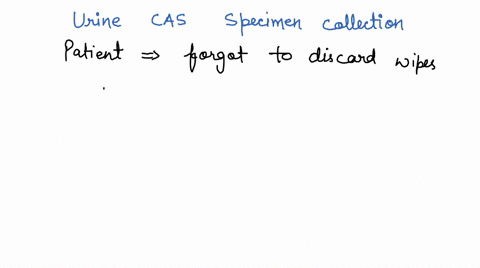 Urine CAS Specimen collection
Patient ⇒ forgot to discard wipes